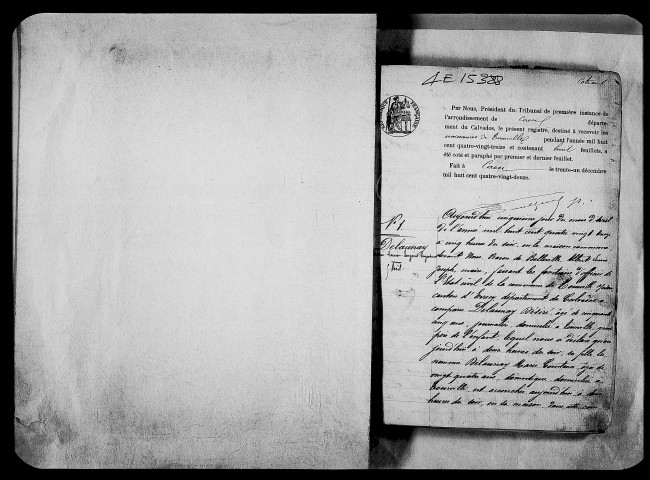 4E 15388
Par Nous, Président du Tribunal de première instance de
l'arrondissement de Caen départe-
ment du Calvados, le présent registre, destiné à recevoir les
naissances de pendant l'année mil huit
cent quatre-vingt-treize et contenant huit feuillets, a
été coté et paraphé par premier et dernier feuillet.
Fait à Caen le trente-un décembre
mil huit cent quatre-vingt-douze.
N° 1
Delaunay
Aujourd'hui cinquième jour du mois d'Avril
de l'année mil huit cent quatre vingt treize
à cinq heures du soir, en la maison commune
devant Nous Baron de Albert Louis
Joseph, maire, faisant les fonctions d'officier de
l'état civil de la commune de
canton d'Evrecy département du Calvados a
comparu Delaunay Désiré, âgé de cinquante
cinq ans, journalier, domicilié à
père de l'enfant. Lequel nous a déclaré qu'au-
jourd'hui à deux heures du soir, sa fille la
nommée Delaunay Marie âgée de
vingt quatre ans, domestique, domiciliée à
est accouchée aujourd'hui à deux
heures du soir, en sa maison, dans cette